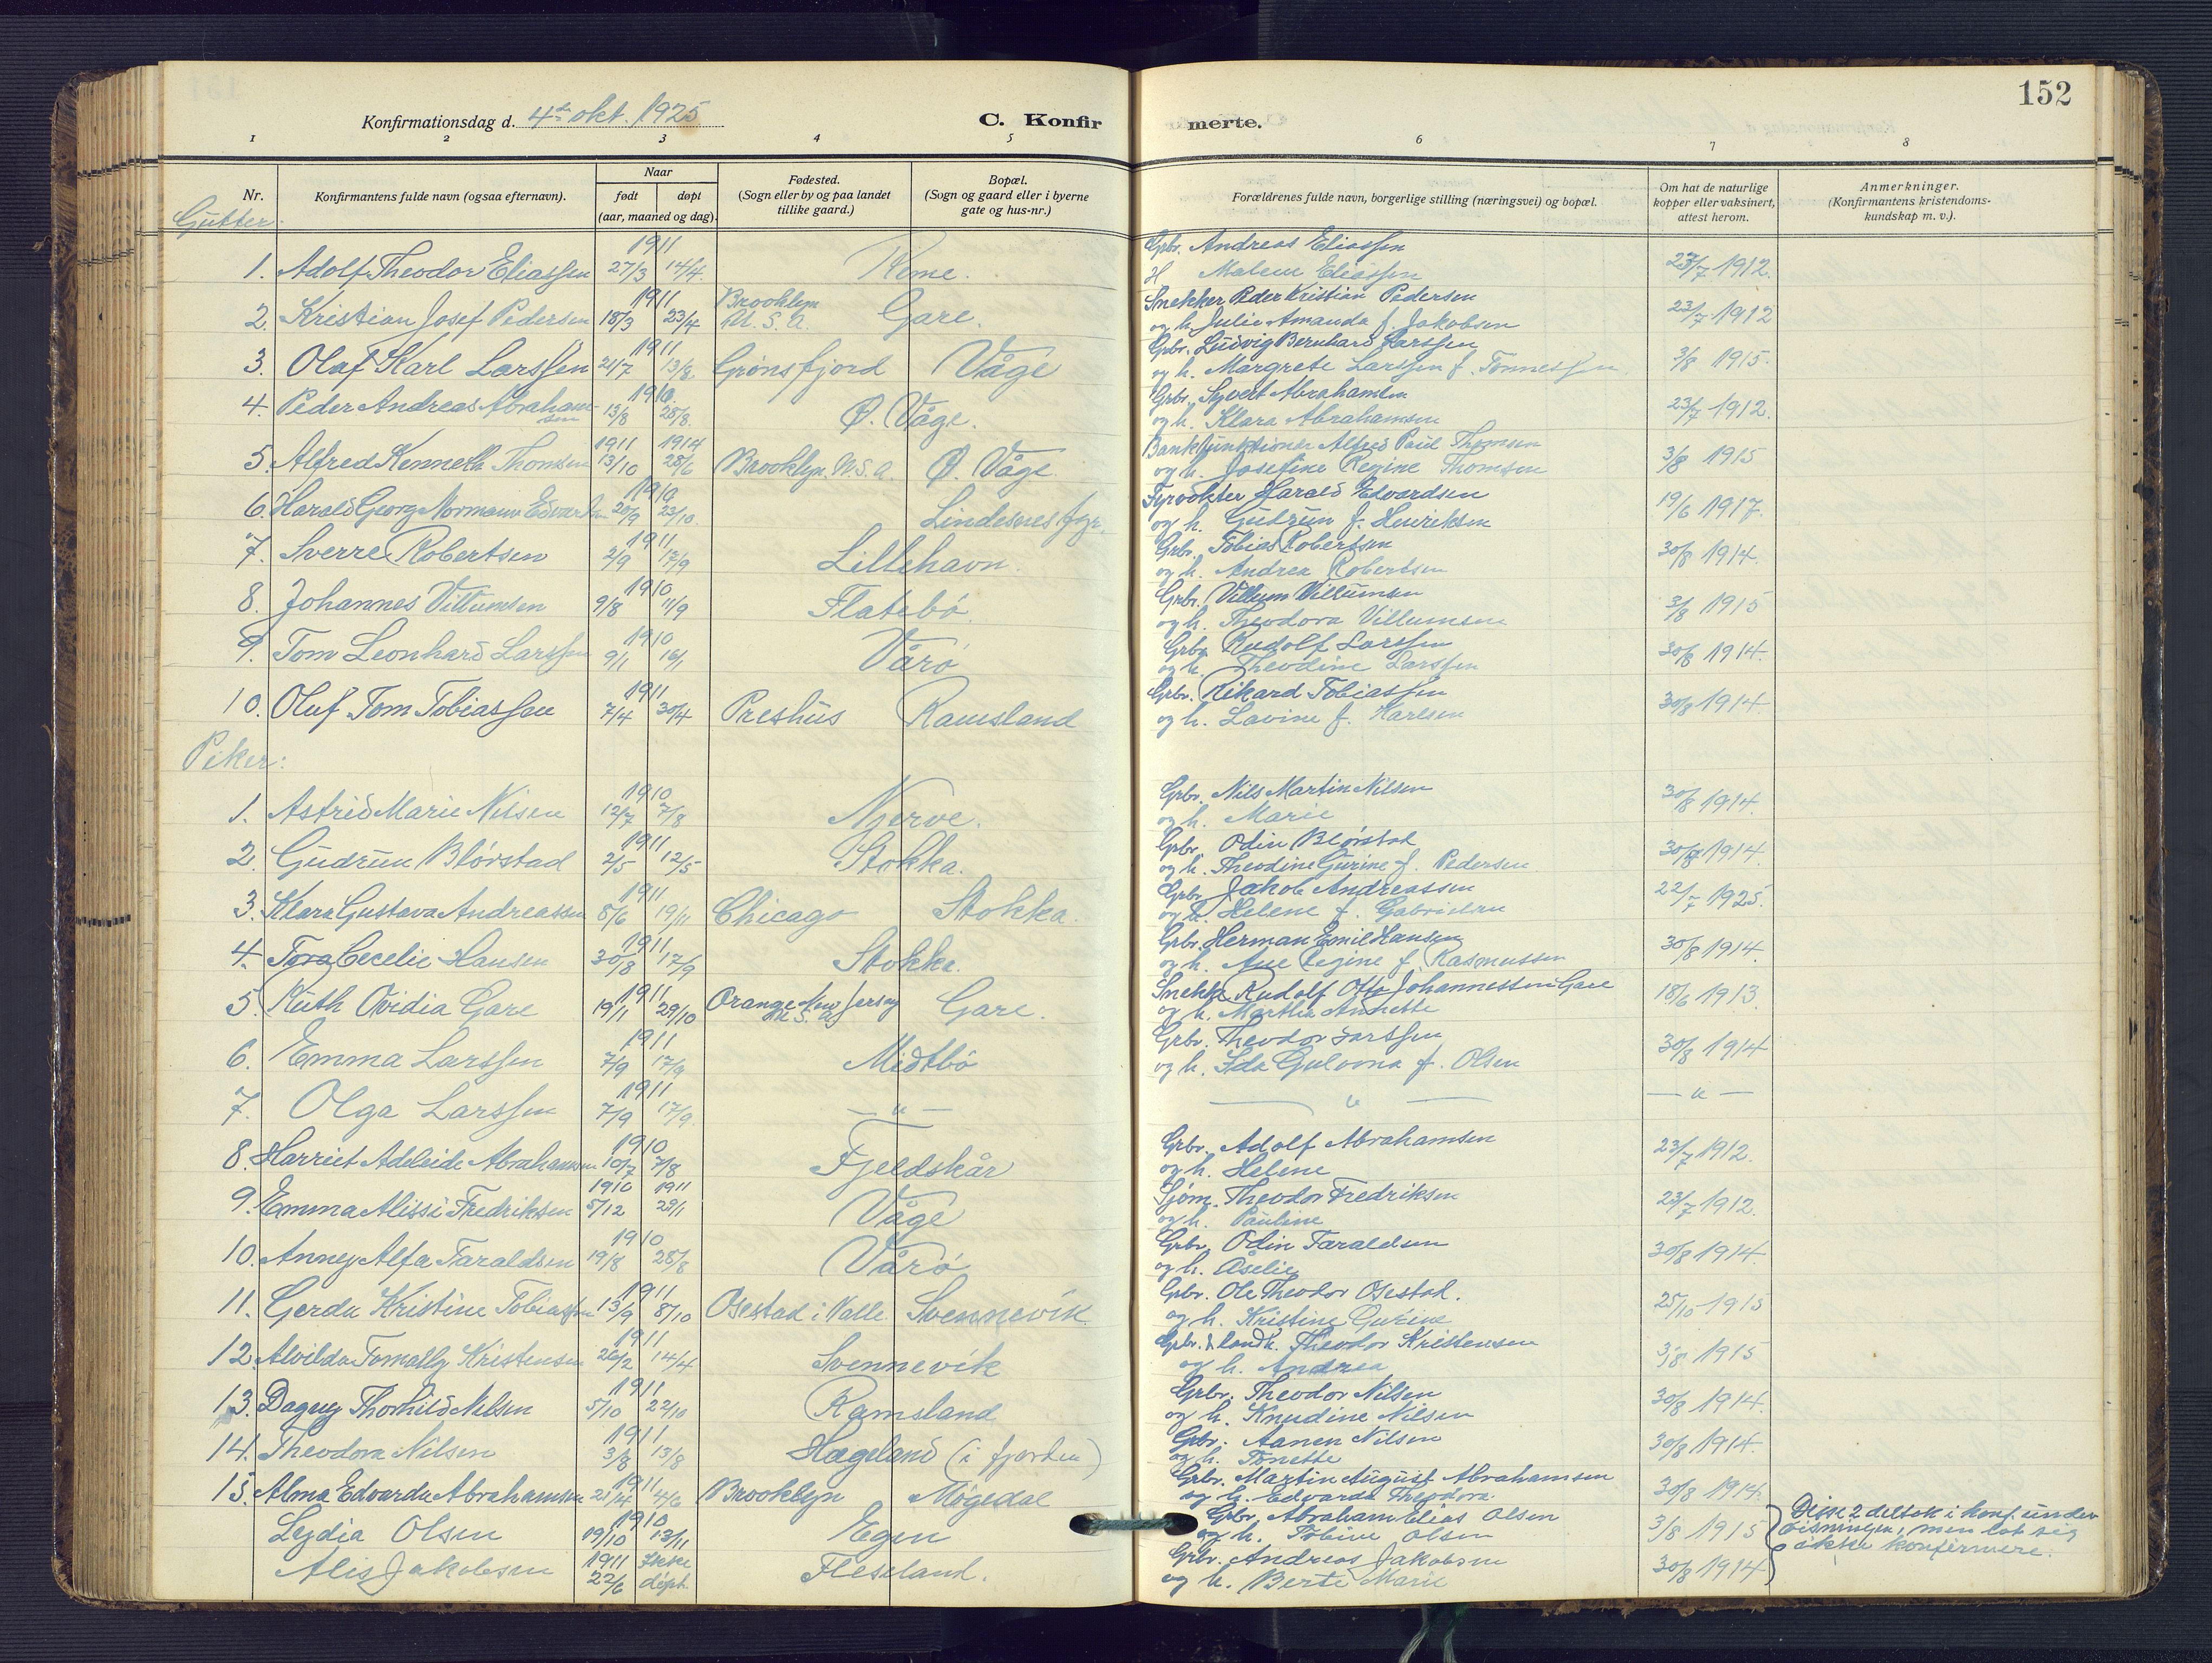 152
Konfirmationsdag d. 4de okt. 1925
C. Konfirmerte.
1 2 3 4 5 6 7 8
Nr.
Konfirmantens fulde navn (ogsaa efternavn).
Naar
født
døpt
(aar, maaned og dag).
Fødested.
(Sogn eller by og paa landet
tillike gaard.)
Bopæl.
(Sogn og gaard eller i byerne
gate og hus-nr.)
Forældrenes fulde navn, borgerlige stilling (næringsvei) og bopæl.
Om hat de naturlige
kopper eller vaksinert,
attest herom.
Anmerkninger.
(Konfirmantens kristendoms-
kundskap m. v.).
Gutter:
1911 Grbr. Andreas Eliassen
1. Adolf Theodor Eliassen 27/3 14/4. 23/7 1912.
H Malene Eliassen
1911 Brooklyn Snekker Peder Kristian Pedersen
2. Kristian Josef Pedersen 18/3 23/4 U.S.A. Gare. 23/7 1912
og h. Julie Amanda f. Jakobsen
1911 Grbr. Ludvig Bernhard Larssen
3. Olaf Karl Larssen 21/7 13/8. Grønsfjord Våge 3/8 1915.
og h. Margrete Larssen f. Tønnessen.
1910. Grbr. Syvert Abrahamsen
4. Peder Andreas Abrahamsen 13/8 28/8. Ø. Våge. 23/7 1912.
og h. Klara Abrahamsen
1911 1914 Bankfunktionær Alfred Paul Thomsen
5. Alfred Kenneth Thomsen 13/10 28/6 Brooklyn. U.S.A. Ø. Våge 3/8 1915
og h. Josefine Regine Thomsen
1910 Fyrvokter Harald Edvardsen
6. Harald Georg Normann Edvardsen 20/9 23/10. Lindesnes fyr. 19/6 1917.
og h. Gudrun f. Henriksen
1911 Grbr. Tobias Robertsen
7. Sverre Robertsen 2/9 17/9 Lillehavn. 30/8 1914.
og h. Andrea Robertsen
1910 Grbr. Villum Villumsen
8. Johannes Villumsen 9/8 11/9 Flatebø. 3/8 1915
og h. Theodora Villumsen
1910 Grbr Rudolf Larssen
9. Tom Leonhard Larssen 9/1 16/1 Vårø 30/8 1914.
og h. Theodine Larssen
1911 Grbr. Rikard Tobiassen
10. Oluf Tom Tobiassen 7/4 30/4 Preshus Ramsland 30/8 1914.
og h. Lavine f. Karlsen
Piker:
1910 Grbr. Nils Martin Nilsen
1. Astrid Marie Nilsen 12/7 7/8 Njerve. 30/8 1914.
og h. Marie
1911 Grbr. Odin Blørstad
2. Gudrun Blørstad 2/5 12/5 Stokka. 30/8 1914.
og h. Theodine Gurine f. Pedersen
1911 Grbr. Jakob Andreassen
3. Klara Gustava Andreassen 8/6 19/11 Chicago Stokka. 22/7 1925.
og h. Helene f. Gabrielsen
1911 Grbr. Herman Emil Hansen
4. Tora Cecelie Hansen 30/8 17/9 Stokka. 30/8 1914
og h. Ane Regine f. Rasmussen
1911 Orange New Jersey Snekk Rudolf Otto Johannessen Gare
5. Ruth Ovidia Gare 19/1 29/10 U.S.A. Gare. 18/6 1913.
og h. Marthe Annette
1911 Grbr. Theodor Larssen
6. Emma Larssen 7/9 17/9 Midtbø 30/8 1914
og h. Ida Gulovna f. Olsen
1911
7. Olga Larssen 7/9 17/9. — " — — " — — " —
1910 Grbr. Adolf Abrahamsen
8. Harriet Adeleide Abrahamsen 10/7 7/8 Fjeldskår 23/7 1912.
og h. Helene
1910 1911 Sjøm. Theodor Fredriksen
9. Emma Alissi Fredriksen 5/12 29/1 Våge 23/7 1912.
og h. Pauline
1910 Grbr. Odin Taraldsen
10. Anney Alfa Taraldsen 19/8 28/8 Vårø 30/8 1914.
og h. Åselie
1911 Grbr. Ole Theodor Osestad.
11. Gerda Kristine Tobiassen 13/9 8/10 Osestad i Valle Svennevik 25/10 1915
og h. Kristine Gurine
1911 Grbr. & landh. Theodor Kristensen
12. Alvilda Tomally Kristensen 26/2 14/4 Svennevik 3/8 1915
og h. Andrea
1911 Grbr. Theodor Nilsen
13. Dagny Thorhild Nilsen 5/10 22/10 Ramsland 30/8 1914.
og h. Knudine Nilsen
1911 Grbr. Aanen Nilsen
14. Theodora Nilsen 3/8 13/8 Hægeland (i fjorden) 30/8 1914.
og h. Tonette
1911 Grbr. Martin August Abrahamsen
15. Alma Edvarda Abrahamsen 21/4 4/6 Brooklyn Møgedal 30/8 1914.
og h. Edvarda Theodora.
1910 Grbr. Abraham Elias Olsen
Lydia Olsen 19/10 13/11 Egen 3/8 1915
og h. Tobine Olsen
Disse 2 deltok i konf. under
visningen, men lot sig
ikke konfirmere.
1911 Ikke Grbr. Andreas Jakobsen
Alis Jakobsen 22/6 døpt. Fleseland. 30/8 1914
og h. Berte Marie